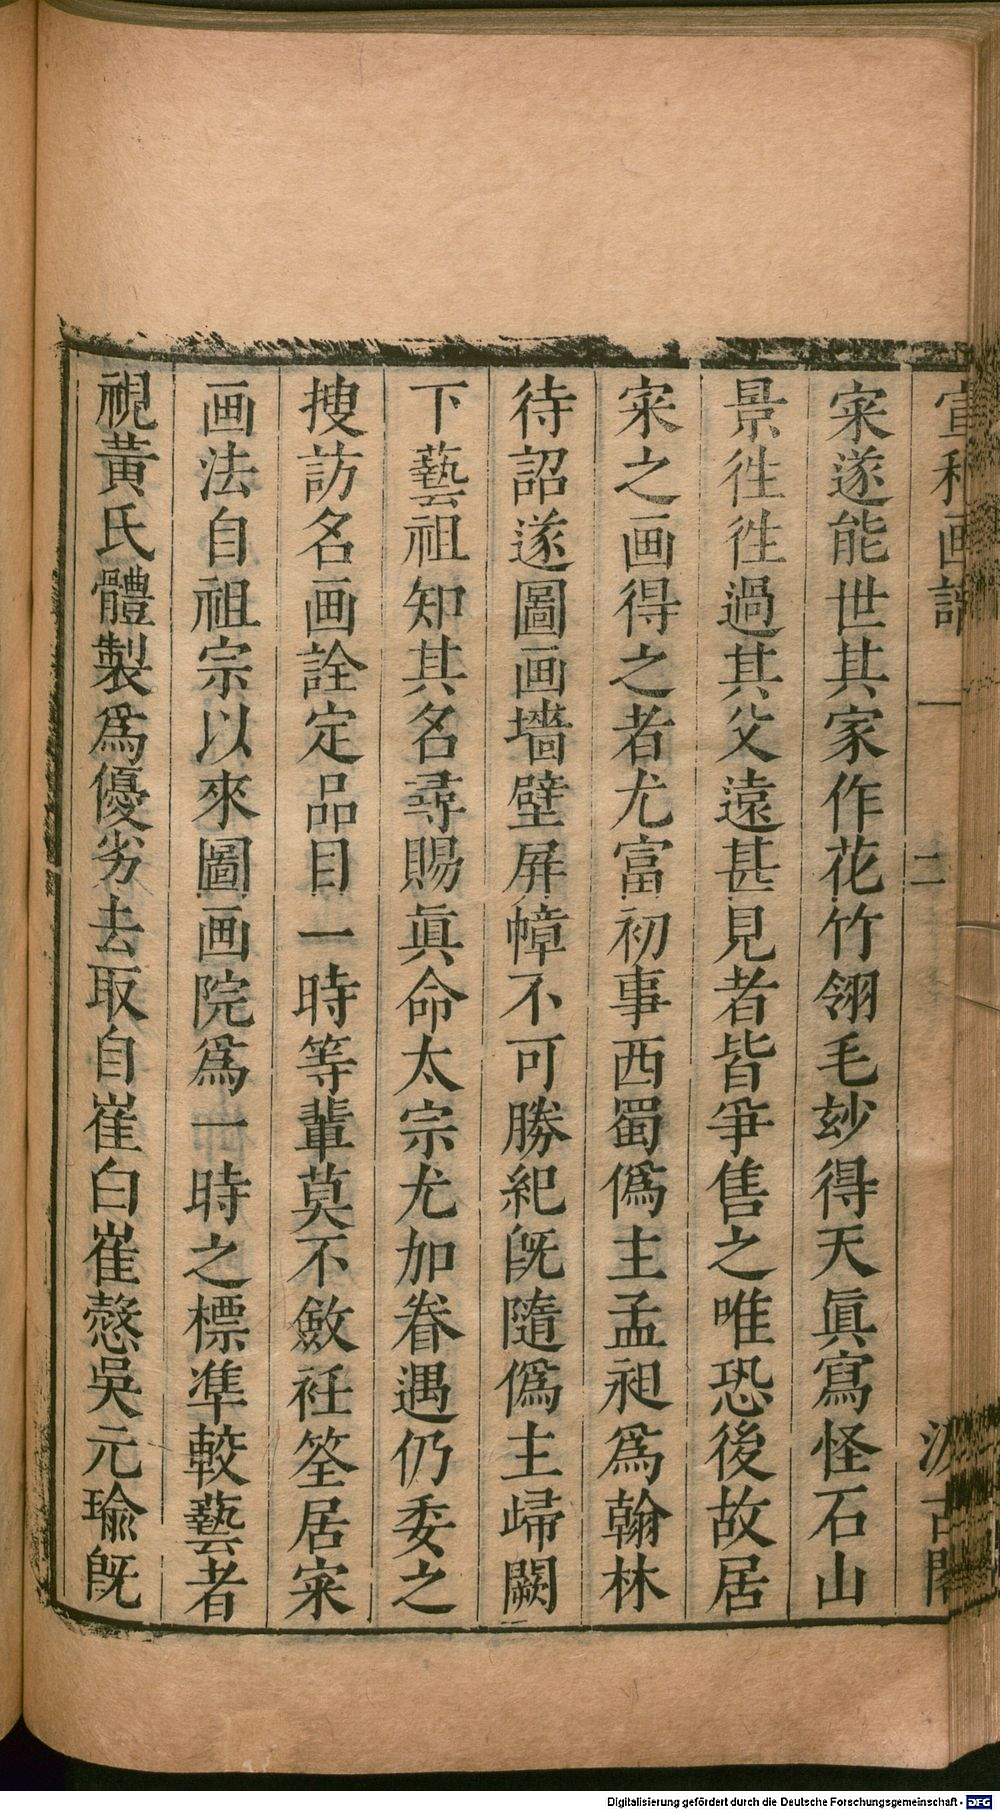 宣和画譜 一 二 汲古閣
寀遂能世其家作花竹翎毛玅得天眞寫怪石山
景徃徃過其父遠甚見者皆爭售之唯恐後故居
寀之画得之者尤富初事西蜀僞主孟昶爲翰林
待詔遂圖画墻壁屏幛不可勝紀旣隨僞主歸闕
下藝祖知其名尋賜眞命太宗尤加眷遇仍委之
搜訪名画詮定品目一時等輩莫不斂衽筌居寀
画法自祖宗以來圖画院爲一時之標凖較藝者
視黃氏體製爲優劣去取自崔白崔慤吳元瑜旣
Digitalisierung gefördert durch die Deutsche Forschungsgemeinschaft - DFG